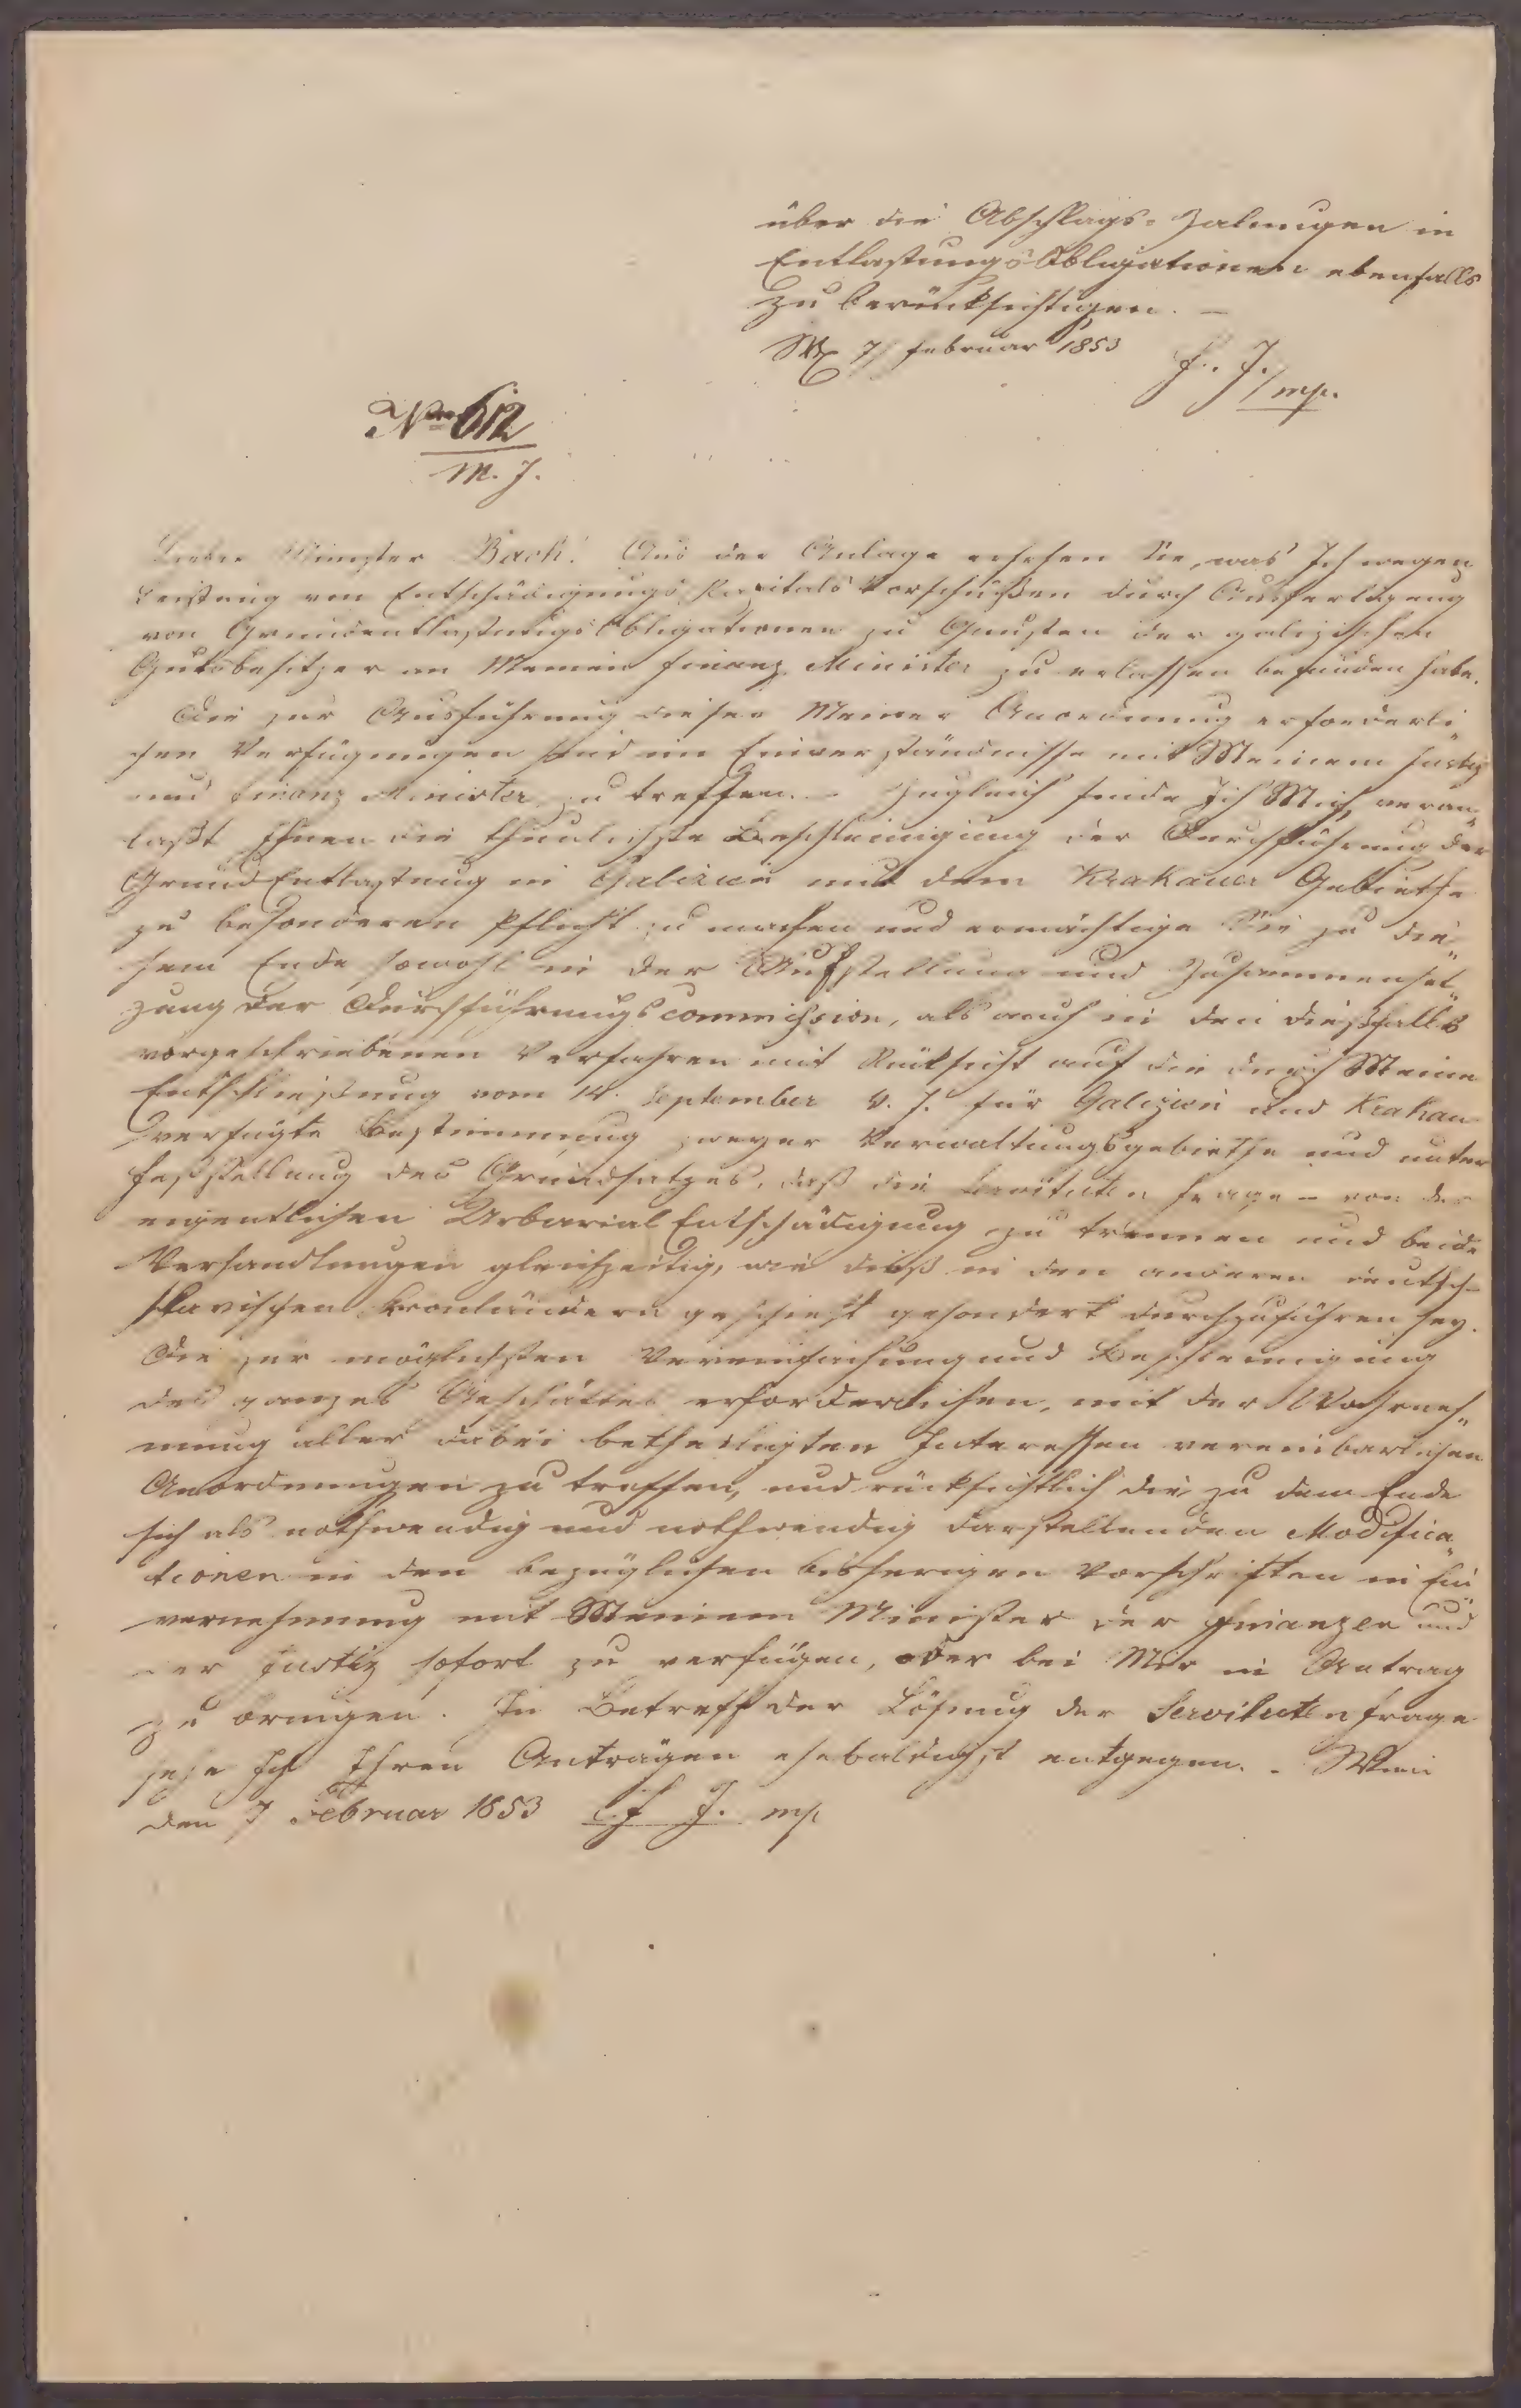 über die Abschlags-Zalungen in
Entlastungs Obligationen ebenfalls
zu berücksichtigen. –
W. 7/ februar 1853
F. J./mp.
Nro 612
M. J.
Lieber Minister Bach! Aus der Anlage ersehen Sie, was Ich wegen
Leistung von Entschädigungs Kapitals Vorschüssen durch Ausfertigung
von Grundentlastungs Obligationen zu Gunsten der galizischen
Gutsbesitzer an Meinen Finanz Minister zu erlassen befunden habe.
Die zur Ausführung dieser Meiner Anordnung erforderli„
chen Verfügungen sind im Einverständnisse mit Meinem Justiz
und Finanz Minister zu treffen. – Zugleich finde Ich Mich veran„
laßt Ihnen die thunlichste Beschleunigung der Durchführung der
Grund Entlastung in Galizien mit dem Krakauer Gebiethe
zu besonderen Pflicht zu machen und ermächtige Sie zu die„
sem Ende sowohl in der Aufstellung und Zusammenset„
zung der Durchführungs commission, als auch in den dießfalls
vorgeschriebenen Verfahren mit Rücksicht auf die durch Meine
Entschließung vom 14. September v. J. für Galizien und Krakau
verfügte Bestimmung zweyer Verwaltungsgebiethe und unter
Feststellung des Grundsatzes, daß die Servituten frage – von der
eigentlichen Urbarial Entschädigung zu trennen und beide
Verhandlungen gleichzeitig, wie dieß in den anderen deutsch-
slavischen Kronländern geschieht gesondert durchzuführen sey.
Die zur möglichsten Vereinfachung und Beschleunigung
des ganzes Geschäftes erforderlichen, mit der Wahrneh„
mung aller dabei betheiligten Interessen vereinbarlichen
Anordnungen zu treffen, und rücksichtlich die zu dem Ende
sich als nothwendig und nothwendig darstellenden Modifica„
tionen in den bezüglichen bisherigen Vorschriften in Ein„
vernehmung mit Meinem Minister der Finanzen und
der Justiz sofort zu verfügen, oder bei Mir in Antrag
zu bringen. In Betreff der Lösung der Servituten frage
sehe Ich Ihren Anträgen ehebaldigst entgegen. – Wien
den 7 Februar 1853 F. J. mp.